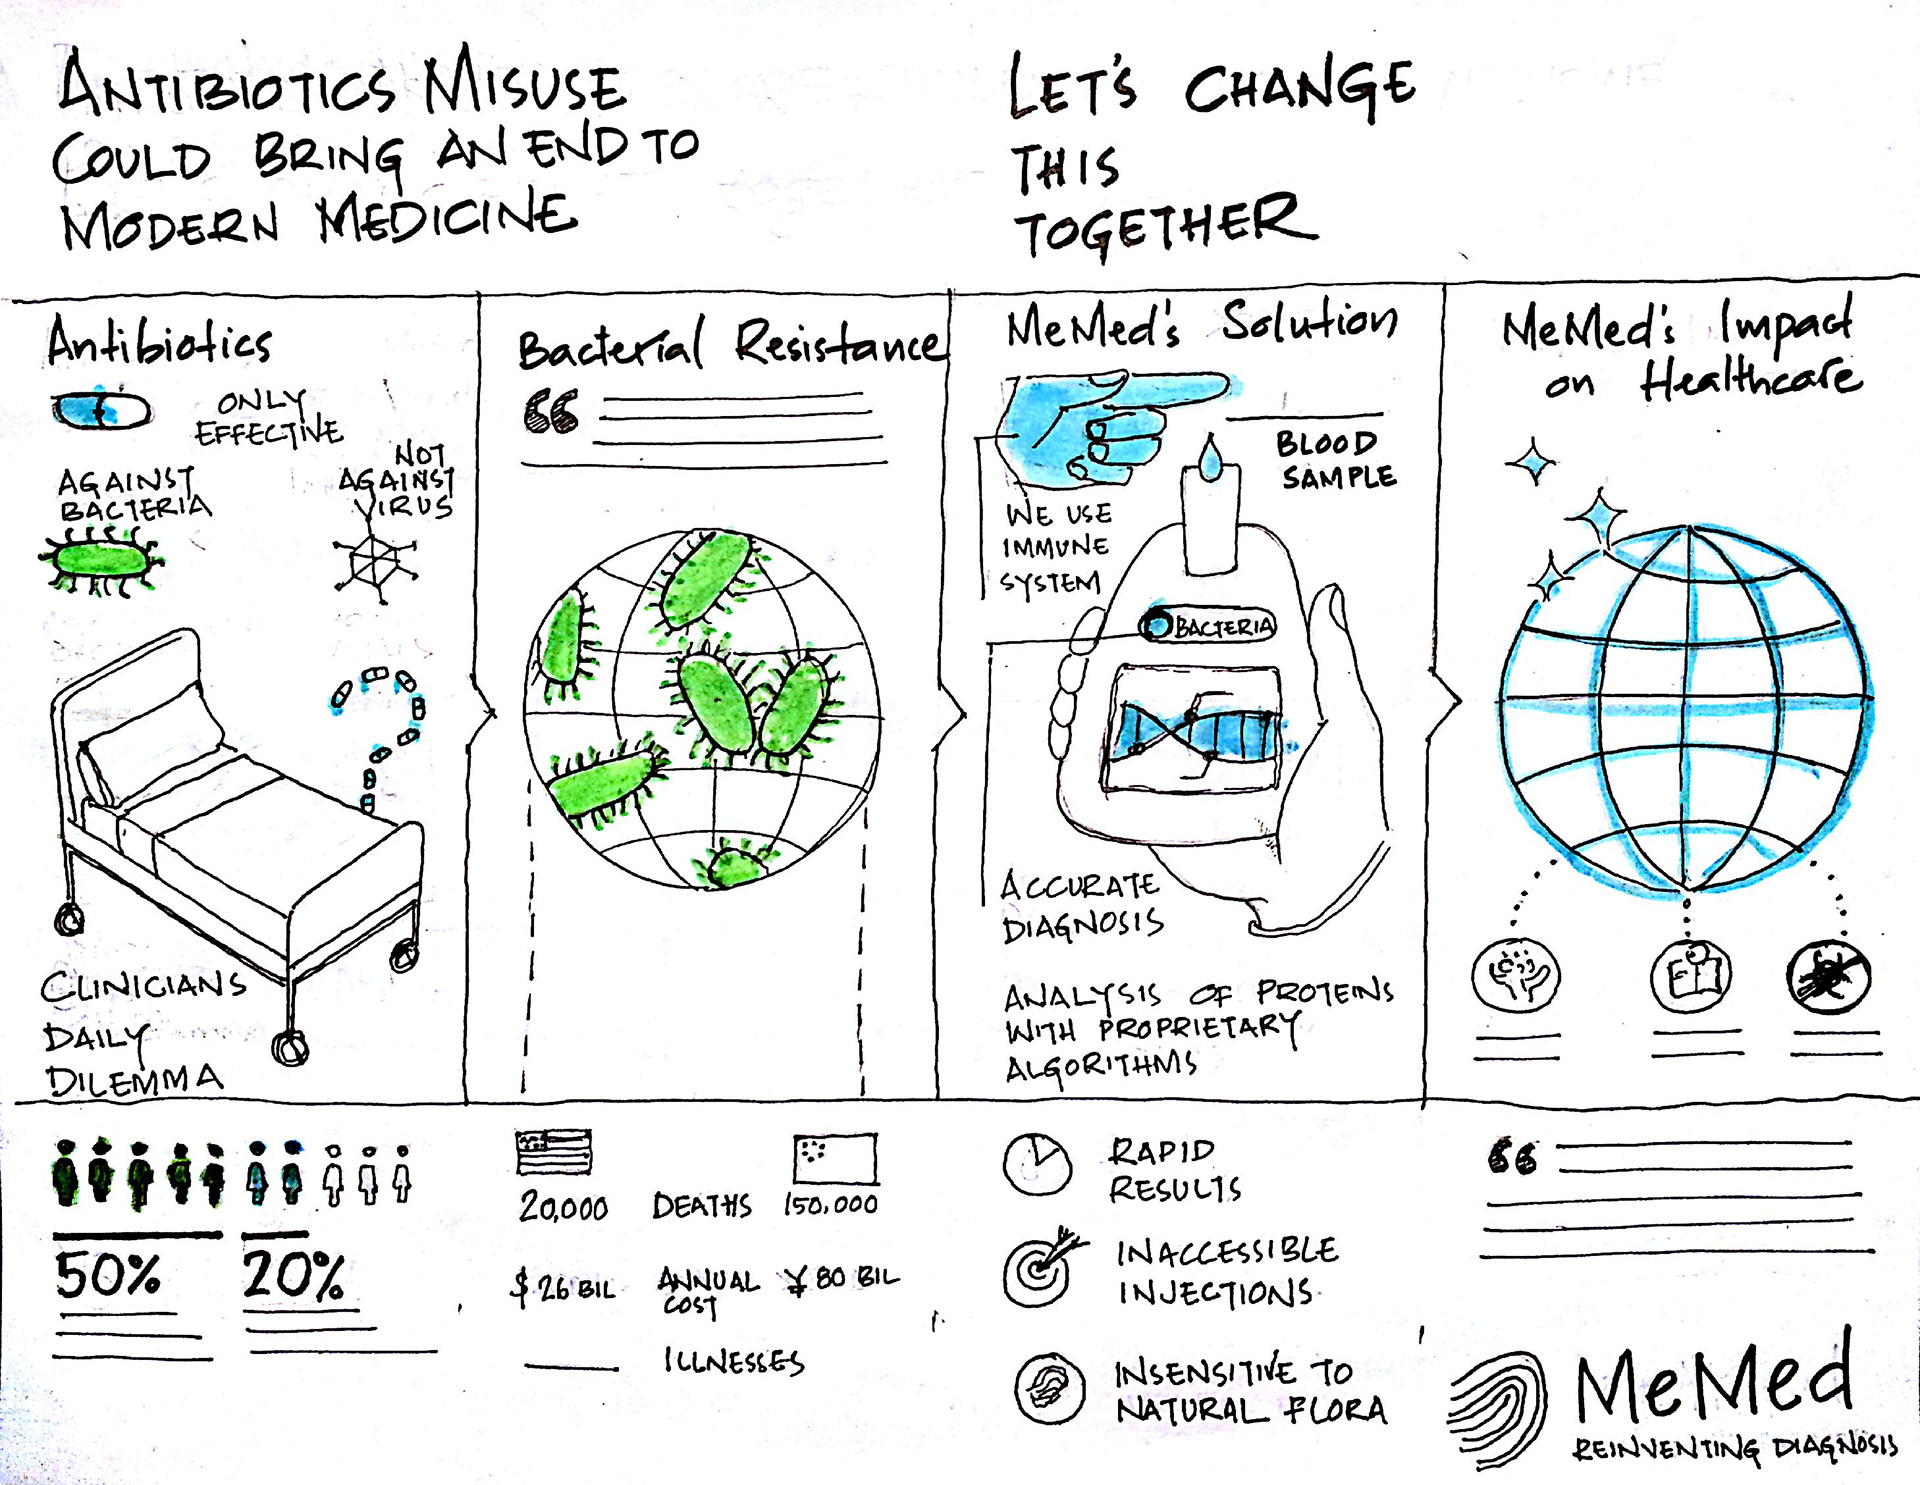 ANTIBIOTICS MISUSE
COULD BRING AN END TO
MODERN MEDICINE
LET'S CHANGE
THIS
TOGETHER
Antibiotics
ONLY
EFFECTIVE
AGAINST
BACTERIA
NOT
AGAINST
VIRUS
CLINICIANS
DAILY
DILEMMA
50%
20%
Bacterial Resistance
“
20,000 DEATHS 150,000
$ 26 BIL ANNUAL COST ¥ 80 BIL
ILLNESSES
MeMed's Solution
BLOOD
SAMPLE
WE USE
IMMUNE
SYSTEM
BACTERIA
ACCURATE
DIAGNOSIS
ANALYSIS OF PROTEINS
WITH PROPRIETARY
ALGORITHMS
RAPID
RESULTS
INACCESSIBLE
INJECTIONS
INSENSITIVE TO
NATURAL FLORA
MeMed's Impact
on Healthcare
“
MeMed
REINVENTING DIAGNOSIS